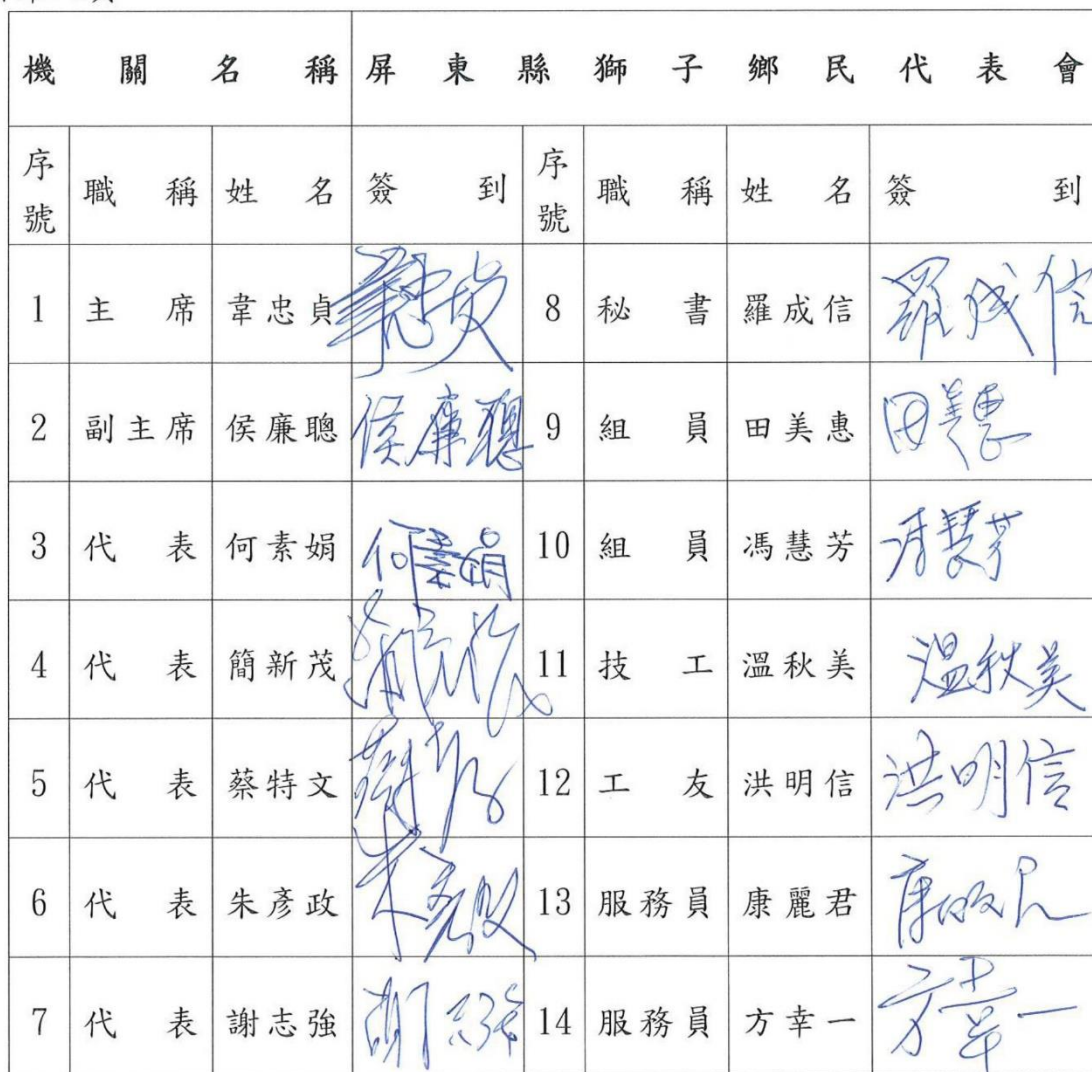 機關名稱 屏東縣獅子鄉民代表會
序號 職稱 姓名 簽到 序號 職稱 姓名 簽到
1 主席 韋忠貞 韋忠貞 8 秘書 羅成信 羅成信
2 副主席 侯廉聰 侯廉聰 9 組員 田美惠 田美惠
3 代表 何素娟 何素娟 10 組員 馮慧芳 馮慧芳
4 代表 簡新茂 簡新茂 11 技工 溫秋美 溫秋美
5 代表 蔡特文 12 工友 洪明信 洪明信
6 代表 朱彥政 朱彥政 13 服務員 康麗君 康麗君
7 代表 謝志強 14 服務員 方幸一 方幸一